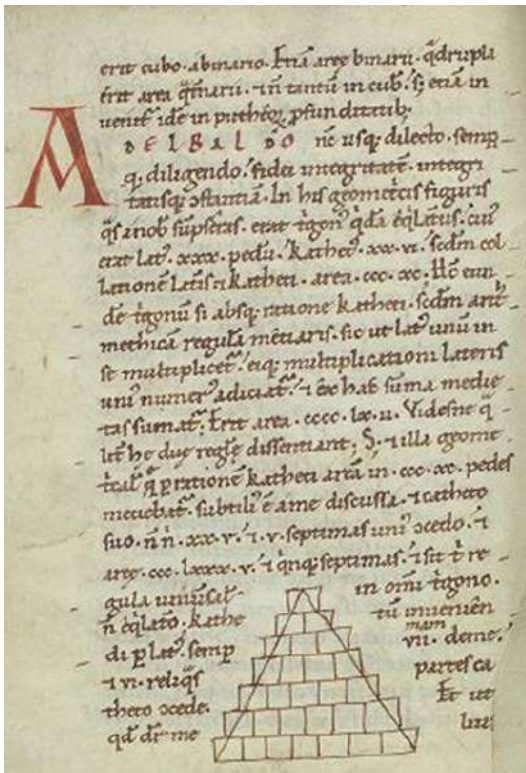 erit cubo · abinario · Etiā aręę binarii · q̄drupla
erit area q̄t̄narii · ⁊ n̄ tantū in cub · ſꝫ etiā in
A
D E L B A L D O nc̄ uſqꝫ dilecto · ſemp
qꝫ diligendo · fidei integritatē · integri
tatiſqꝫ ↄſtantiā · In his geometricis figuris
erat lat᷒ · xxx · pedū · kathet᷒ · xx · vi · ſcd̄m col
lationē lateris ⁊ katheti · area · ccc · xc · Hoc eun
dē t̓gonū ſi abſqꝫ ratione katheti · ſcd̄m arit
methicā regulā mētiaris · ſic ut lat᷒ unū in
ſe multiplicet᷒ · eiqꝫ multiplicationi lateris
uni᷒ numer᷒ adiciat᷒ · ⁊ ex hac ſūma medie
tas ſumat᷒ · Erit area · cccc · lx · v · Videſne q̄
lit̄ hę duę regulę diſſentiant · Sꝫ ⁊ illa geome
tricalꝰ q̄ ꝑ rationē katheti areā in · ccc · xc · pedes
metiebat᷒ · ſubtili᷒ ē a me diſcuſſa · ⁊ catheto
ſuo · n̄ n̄ · xx · v · ⁊ · v · ſeptimas uni᷒ ↄcedo · ⁊
aręę · ccc · lxxx · v · ⁊ q̄nqꝫ ſeptimas · ⁊ ſit t̓ re
gula uniūſal̓ · in omī t̓gono ·
n̄ ęq̄lato · kathe tū inueniēn
di ꝑ lat᷒ · ſemp mam vii · deme ·
⁊ vi · reliq̄s partes ca
theto ↄcede · Et ut
qd̄ dr̄ · me lius